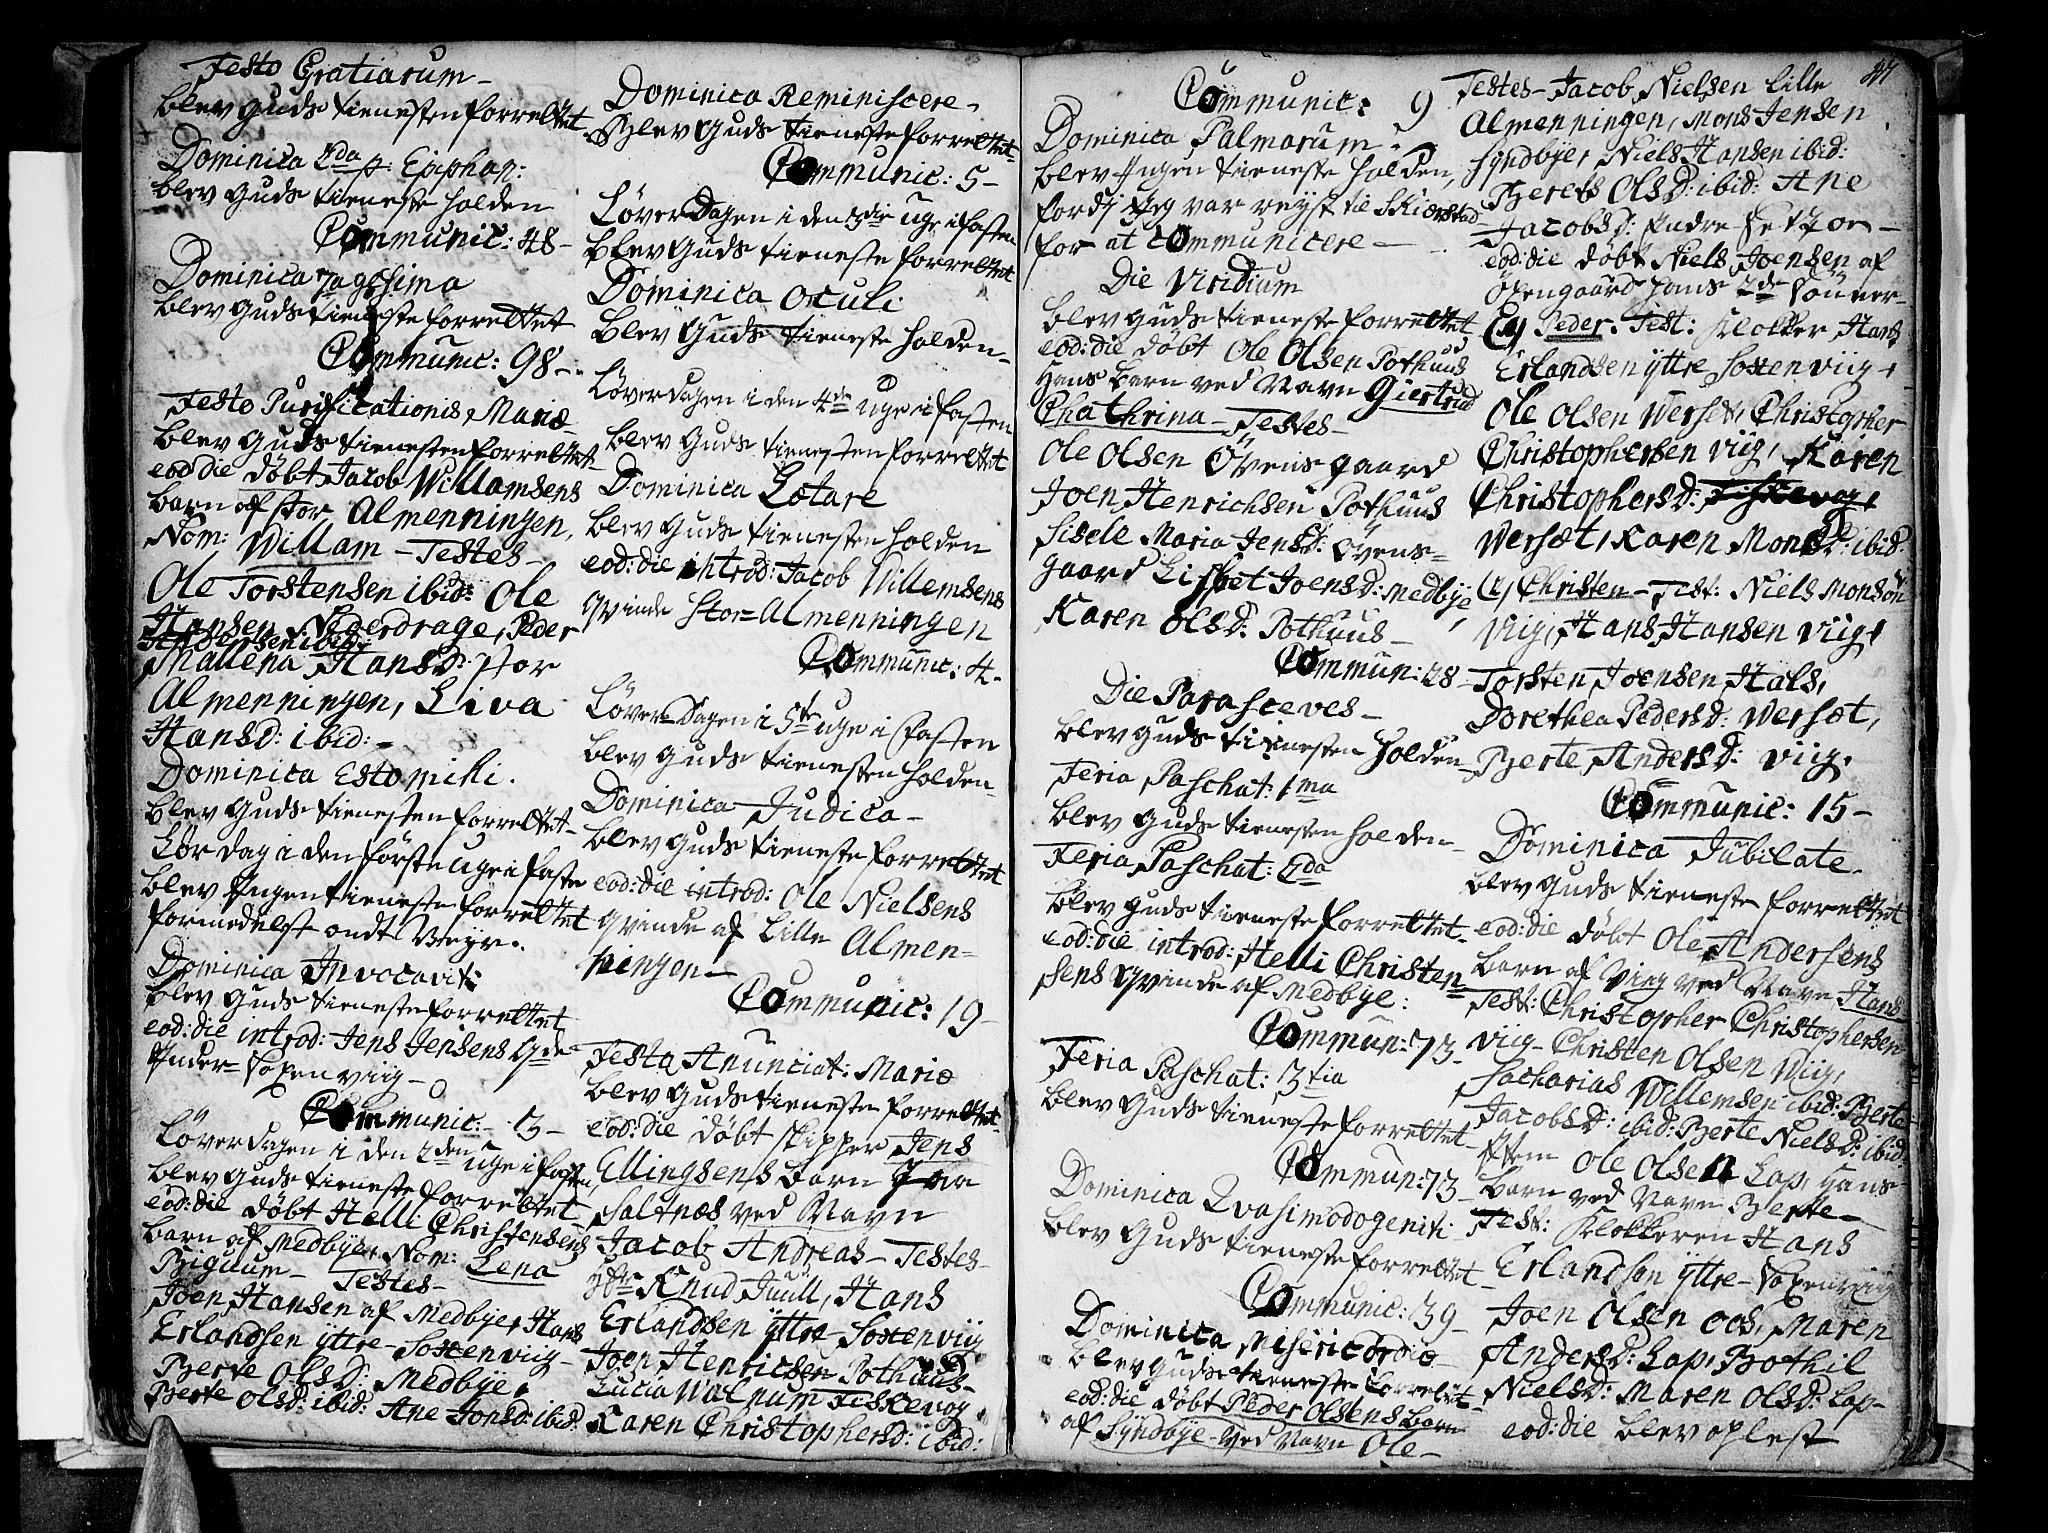 Festo Gratiarum -
blev Guds tienesten forrettet -
Dominica 2da p. Epiphan:
blev Guds tieneste holden
Communic: 48 -
Dominica 7agesima
blev Guds tieneste forrettet
Communic: 98 -
Festo Purificationis Mariæ
blev Guds tienesten forrettet -
eod: die døbt Jacob Willamsens
barn af stor Almenningen,
Nom: Willam - Testes -
Ole Torstensen ibid: Ole
Hansen Nÿerdrage, Peder
ibid:
Mallena Hansd: stor
Almenningen, Liva
Hansd: ibid: -
Dominica Estomihi.
blev Guds tienesten forrettet -
Lør dag i den første uge i faste
blev Ingen tieneste forrettet
formedelst ondt Veÿr.
Dominica Invocavit:
blev Guds tieneste forrettet
eod: die introd: Jens Jensens Qde
Inder= Soxenviig -
Communic: 13 -
Løverdagen i den 2den uge i fasten,
blev Guds tieneste forrettet
eod: die døbt Helli Christensens
barn af Medbÿe, Nom: Lena
Biguum - Testes -
Joen Hansen af Medbÿe, Hans
Erlandsen ÿttre - Soxenviig -
Berte Olsd: Medbÿe,
Berte Olsd: ibid: Ane Jonsd: ibid:
Dominica Reminiscere -
Blev Guds tieneste forrettet -
Communic: 5 -
Løver Dagen i den 3die uge i fasten
blev Guds tieneste forrettet
Dominica Oculi
Blev Guds tieneste holden -
Løverdagen i den 4de uge i fasten
blev Guds tienesten forrettet
Dominica Lætare
blev Guds tienesten holden
eod: die introd: Jacob Willemsens
qvinde Stor= Almenningen
Communic: 4 -
Løver= Dagen i 5te uge i fasten
blev Guds tienesten holden -
Dominica Judica -
blev Guds tieneste forrettet
eod: die introd: Ole Nielsens
qvinde af Lille Almen=
ningen -
Communic: 19 -
Festo Anunciat: Mariæ
blev Guds tieneste forrettet
eod: die døbt skipper Jens
Ellingsens barn fra
Saltnæs ved Navn
Jacob Andreas - Testes -
Hr Knud Juull, Hans
Erlandsen ÿttre - Soxenviig
Joen Henricsen Pothuus -
Lucia Walnum Fiskevog,
Karen Christophersd: ibid:
Communic: 9
Dominica Palmarum -
blev Ingen tieneste holden,
fordj Jeg var reÿst til Skierstad
for at Communicere -
Die Viridium
blev Guds tieneste forrettet
eod: die døbt Ole Olsen Pothuus
Hans barn ved Navn Giertrud
Chathrina - Testes -
Ole Olsen Øvensgaard
Joen Henrichsen Pothuus
Sisele Maria Jensd: Øvens=
gaard Lisbet Joensd: Medbÿe,
Karen Olsd: Pothuus -
Commun: 28 -
Die Parasceves -
blev Guds tienesten Holden -
Feria Paschat: 1ma
blev Guds tienesten holden -
Feria Paschat: 2da
blev Guds tieneste forrettet -
eod: die introd: Helli Christen=
sens Qvinde af Medbÿe:
Commun: 73 -
Feria Paschat: 3tia
blev Guds tieneste forrettet -
Commun: 73 -
Dominica Qvasimodogenit:
blev Guds tieneste forrettet -
Communic: 39 -
Dominica Misericordiæ
blev Guds tieneste forrettet -
eod: die døbt Peder Olsens barn
af Sÿndbÿe - ved Navn Ole -
47
Testes - Jacob Nielsen Lille
Almenningen, Mons Jensen
Sÿndbÿe, Niels Hansen ibid:
Berets Olsd: ibid: Ane
Jacobsd: Indre
eod: die døbt Niels Joensen af
Øxengaard hans 2de Sønner -
(1) Peder. Test: Klokker Hans
Erlandsen ÿttre Soxenviig,
Ole Olsen Wersæt, Christopher
Christophersen Viig, Karen
Christophersd: Fiskevog,
Wersæt, Karen Monsd: ibid:
(2) Christen - Test: Niels Monsøn
Viig, Hans Hansen Viig,
Torsten Joensen Hals,
Dorethea Pedersd: Wersæt,
Berte Andersd: Viig.
Communic: 15 -
Dominica Jubilate.
blev Guds tieneste forrettet
eod: die døbt Ole Andersens
barn af Viig ved Navn Hans
Test: Christopher Christophersen
Viig - Christen Olsen Viig,
Sacharias Willemsen ibid: Berte
Jacobsd: ibid: Berte Nielsd: ibid:
Item Ole Olsen Lap, Hans
barn ved Navn Berte -
Test: Klokkeren Hans
Erlandsen ÿttre - Soxenviig
Joen Olsen Oos, Maren
Andersd: Lap, Bothil
Nielsd: Maren Olsd: Lap -
eod: die blev oplest